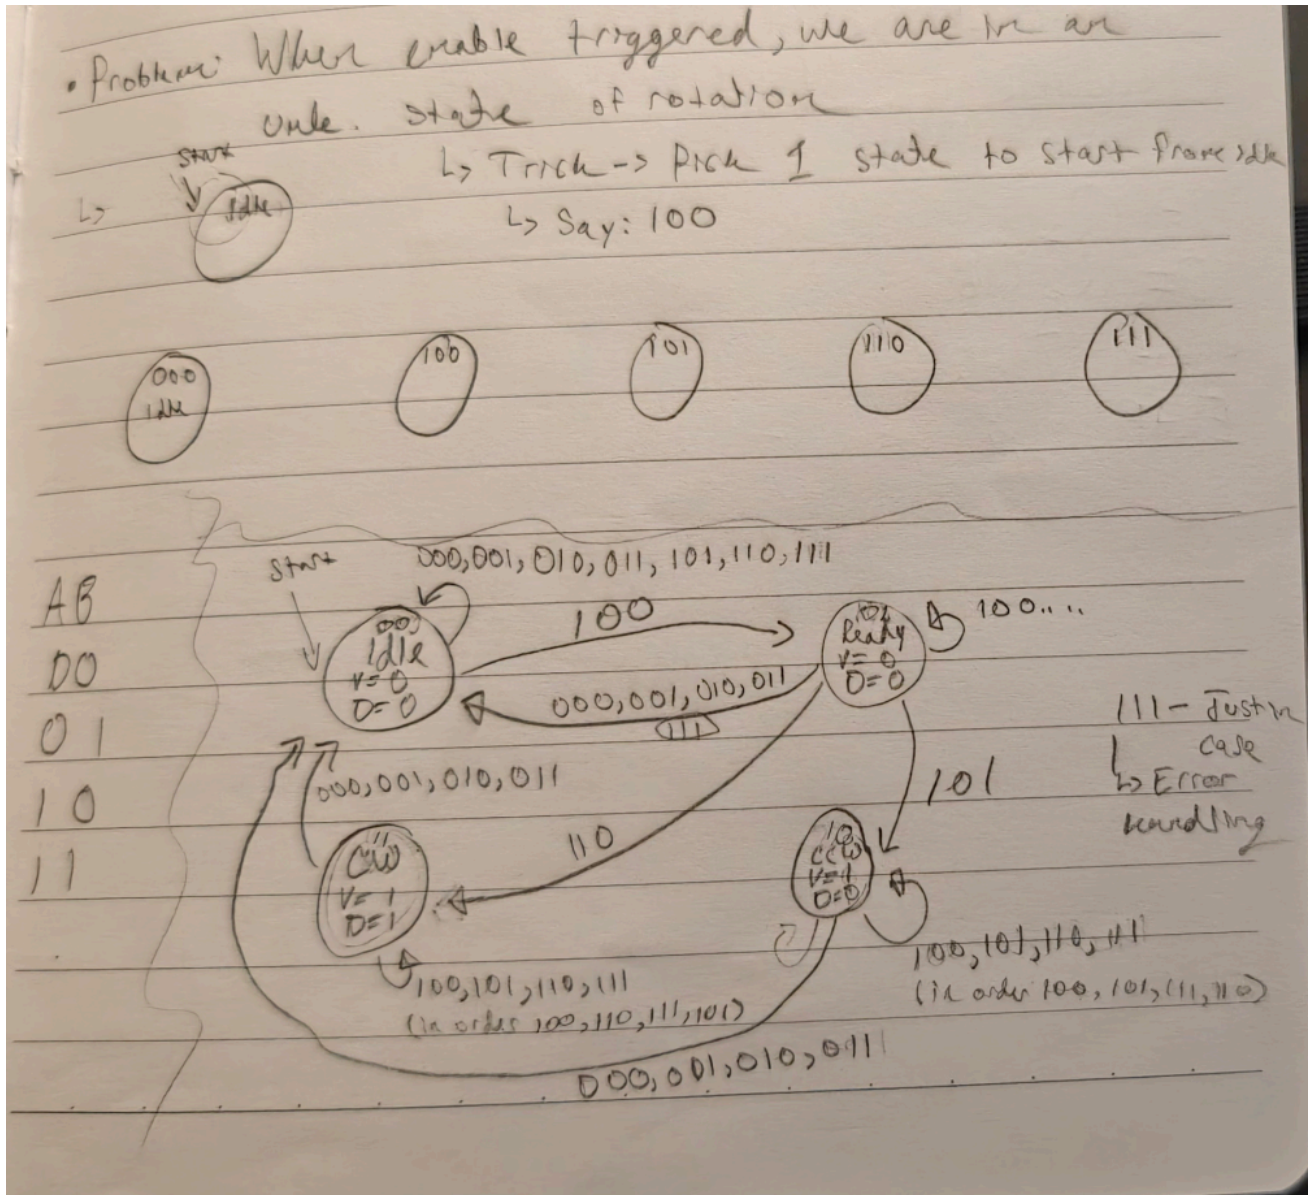 • Problem: When enable triggered, we are in an
unk. state of rotation
↳ Trick -> Pick 1 state to start from idle
↳ Say: 100
Start
↳
Idle
000
Idle
100
101
110
111
Start
000,001,010,011,101,110,111
AB
00
01
10
11
00
Idle
V=0
D=0
100
01
Ready
V=0
D=0
100....
000,001,010,011
111
000,001,010,011
110
101
111 - Just in
case
↳ Error
handling
11
CW
V=1
D=1
10
CCW
V=1
D=0
100,101,110,111
(in order 100,110,111,101)
100,101,110,111
(in order 100,101,111,110)
000,001,010,011